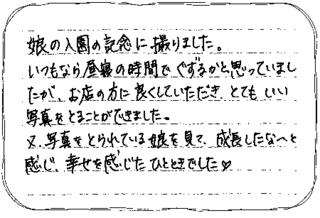 娘の入園の記念に撮りました。
いつもなら昼寝の時間でぐずるかと思っていまし
たが、お店の方に良くしていただき、とてもいい
写真をとることができました。
又、写真をとられている娘を見て、成長したなへと
感じ、幸せを感じたひとときでした♡